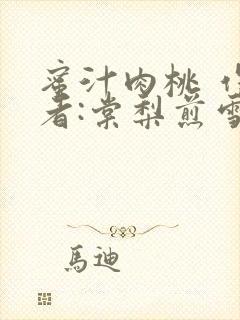 蜜汁肉桃 作
者:棠梨煎雪
馬迪